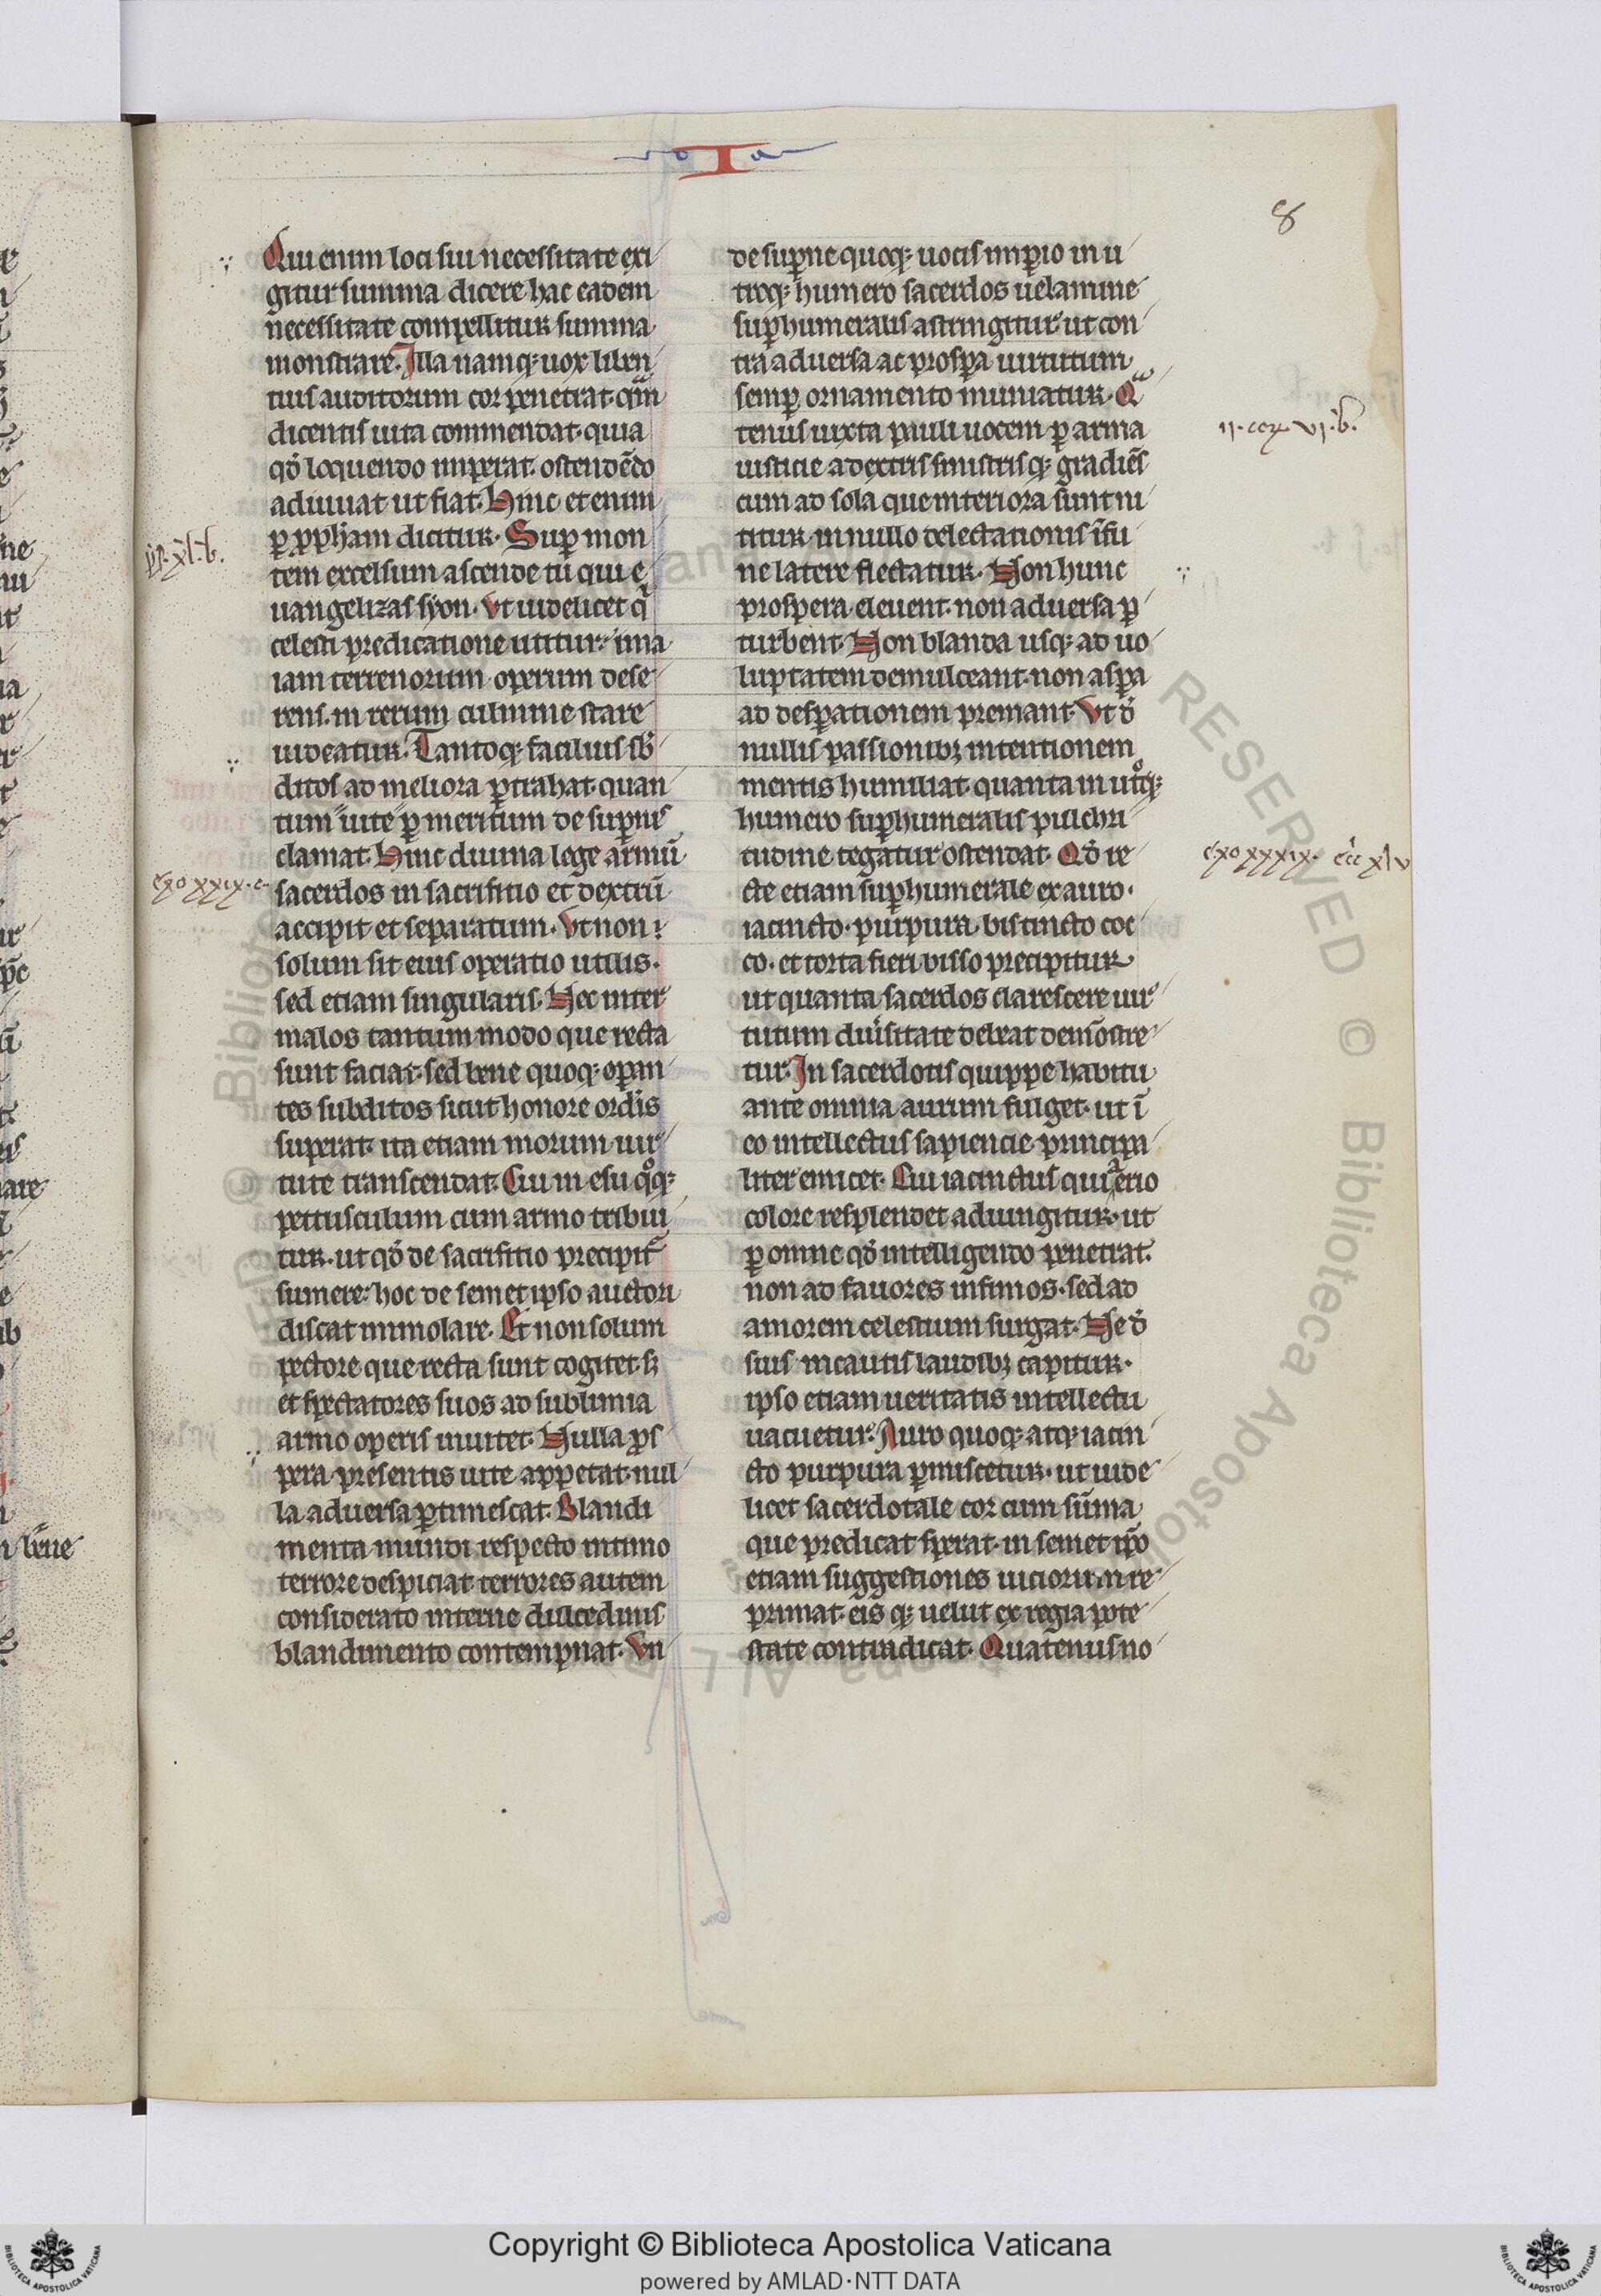 I
8
Qui enim loci sui necessitate exi
gitur summa dicere hac eadem
necessitate compellitur summa
monstrare. Illa namq; uox liben
tius auditorum cor penetrat. qm̄
dicentis uita commendat. quia
qđ loquendo imperat. ostendēdo
adiuuat ut fiat. Hinc et enim
ꝑ ꝓpħam dicitur. Suꝑ mon
tem excelsum ascende tu qui e
uangelizas syon. Vt uidelicet q̇
celesti predicatione utitur: ima
iam terrenorum operum dese
rens. in rerum culmine stare
uideatur. Tantoq; facilius sƀ
ditos ad meliora ꝑtrahat. quan
tum uite ꝑ meritum de suꝑnis
clamat. Hinc diuina lege armū
sacerdos in sacrifitio et dextrū
accipit et separatum. Vt non
solum sit eius operatio utilis.
sed etiam singularis. Nec inter
malos tantum modo que recta
sunt faciat. sed bene quoq; oꝑan
tes subditos sicut honore ordīs
superat. ita etiam morum uir
tute transcendat. Cui in esu q̊q;
pettusculum cum armo tribui
tur. ut qđ de sacrifitio precipit̃
sumere: hoc de semet ipso auctori
discat immolare. Et non solum
pectore que recta sunt cogitet. sꝫ
et spectatores suos ad sublimia
armo operis inuitet. Nulla ꝓs
pera presentis uite appetat. nul
la aduersa ꝑtimescat. Blandi
menta mundi respecto intimo
terrore despiciat. terrores autem
considerato interne dulcedinis
blandimento contempnat. Vn
de suꝑne quoq; uocis imꝑio in u
troq; humero sacerdos uelamine
suꝑhumeralis astringitur. ut con
tra aduersa ac prosꝑa uirtutum
semꝑ ornamento muniatur. Qͣ
tenus iuxta pauli uocem ꝑ arma
iusticie a dextris sinistrisq; gradiēs
cum ad sola que interiora sunt ni
titur. in nullo delectationis īfi
ne latere flectatur. Non hunc
prospera eleuent. non aduersa ꝑ
turbent. Non blanda usq; ad uo
luptatem demulceant. non asꝑa
ad desꝑationem premant. Vt đ
nullis passionibꝫ intentionem
mentis humiliat. quanta in ut̊q;
humero suꝑhumeralis pulchri
tudine tegatur ostendat. Qđ re
cte etiam suꝑhumerale ex auro.
iacincto. purpura. bis tincto coc
co. et torta fieri bisso precipitur
ut quanta sacerdos clarescere uir
tutum diu̾sitate debeat demōstre
tur. In sacerdotis quippe habitu
ante omnia aurum fulget. ut ī
eo intellectus sapiencie principa
liter emicet. Cui iacinctus qui aerio
colore resplendet adiungitur. ut
ꝑ omne qđ intelligendo penetrat.
non ad fauores infimos. sed ad
amorem celestium surgat. Ne đ
suis incautis laudibꝫ capitur.
ipso etiam ueritatis intellectu
uacuetur. Auro quoq; atq; iacin
cto purpura ꝑmiscetur. ut uide
licet sacerdotale cor cum sūma
que predicat sperat. in semet ip̄o
etiam suggestiones uiciorum re
primat. eis q; uelut ex regia pote
state contradicat. Quatenus no
ys. xl. b.
exo xxix. c.
II. cor. vi. b.
exo xxxix. ecc xlv
Copyright © Biblioteca Apostolica Vaticana
powered by AMLAD·NTT DATA